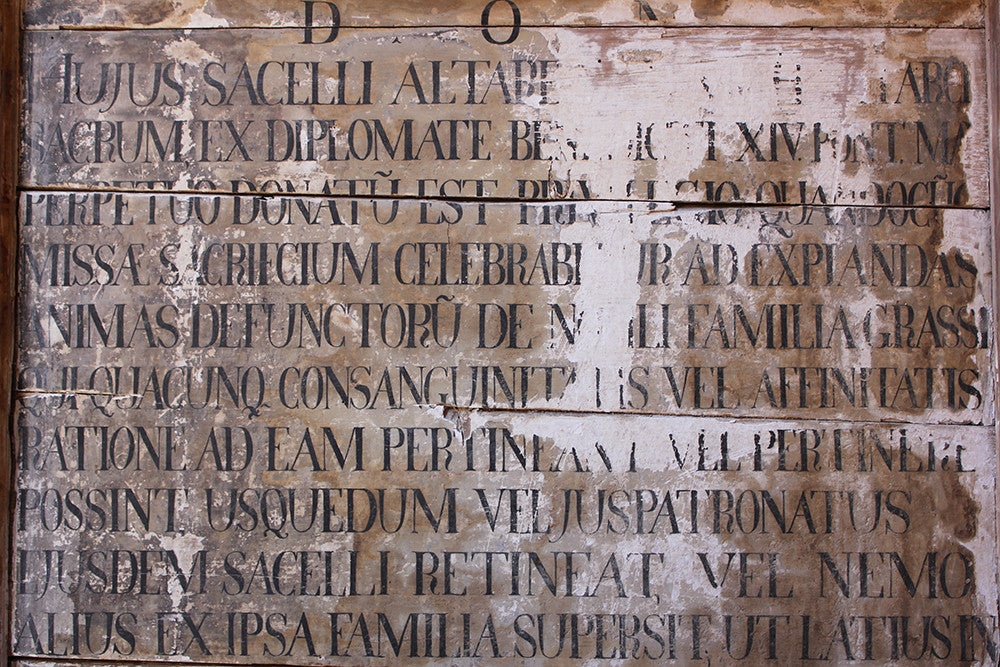 D. O
HUJUS SACELLI ALTARE
SACRUM, EX DIPLOMATE XIV. PONT.
PERPETUO DONATŨ EST
MISSÆ SACRIFICIUM CELEBRABI UR AD EXPIANDAS
ANIMAS DEFUNCTORŨ DE FAMILIA GRASSI
QUI QUACUNQ CONSANGUINITATIS VEL AFFINITATIS
RATIONE AD EAM PERTINEANT VEL PERTINERE
POSSINT USQUEDUM VEL JUSPATRONATUS
EJUSDEM SACELLI RETINEAT, VEL NEMO
ALIUS EX IPSA FAMILIA SUPERSIT, UT LATIUS IN